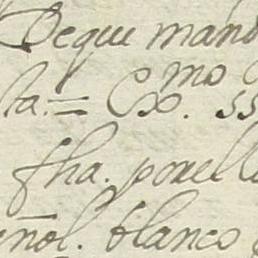 De que mand
ta. = Exmo. SS
fha. por ell
eñol. blanco